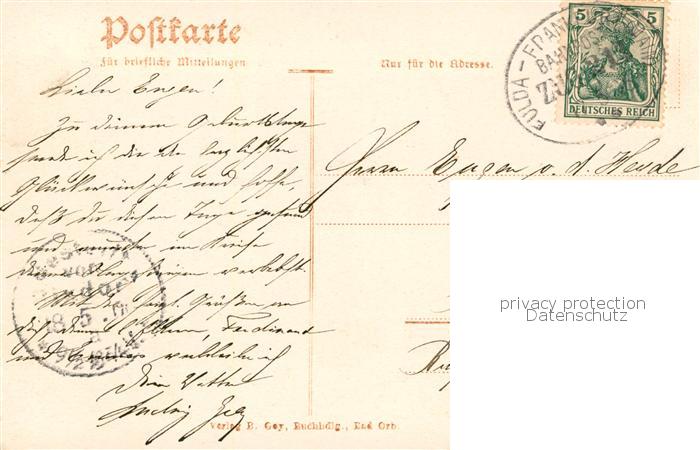 Postkarte
Für briefliche Mitteilungen.
Nur für die Adresse.
5 5
DEUTSCHES REICH
FULDA - FRANKFURT
BAHNPOST
ZUG
Lieber Eugen!
Zu deinem Geburtstage
sende ich dir die herzlichsten
Glückwünsche und hoffe,
daß du diesen Tage gesund
und im Kreise
deiner Angehörigen verlebst.
Mit den Grüßen an
dich, deine Eltern, Ferdinand
und verbleibe ich
Dein Vetter
Ludwig
Herrn Eugen v. d. Heyde
Bestellt
vom
18 5
Verlag B. Goy, Buchhdlg., Bad Orb.
privacy protection
Datenschutz